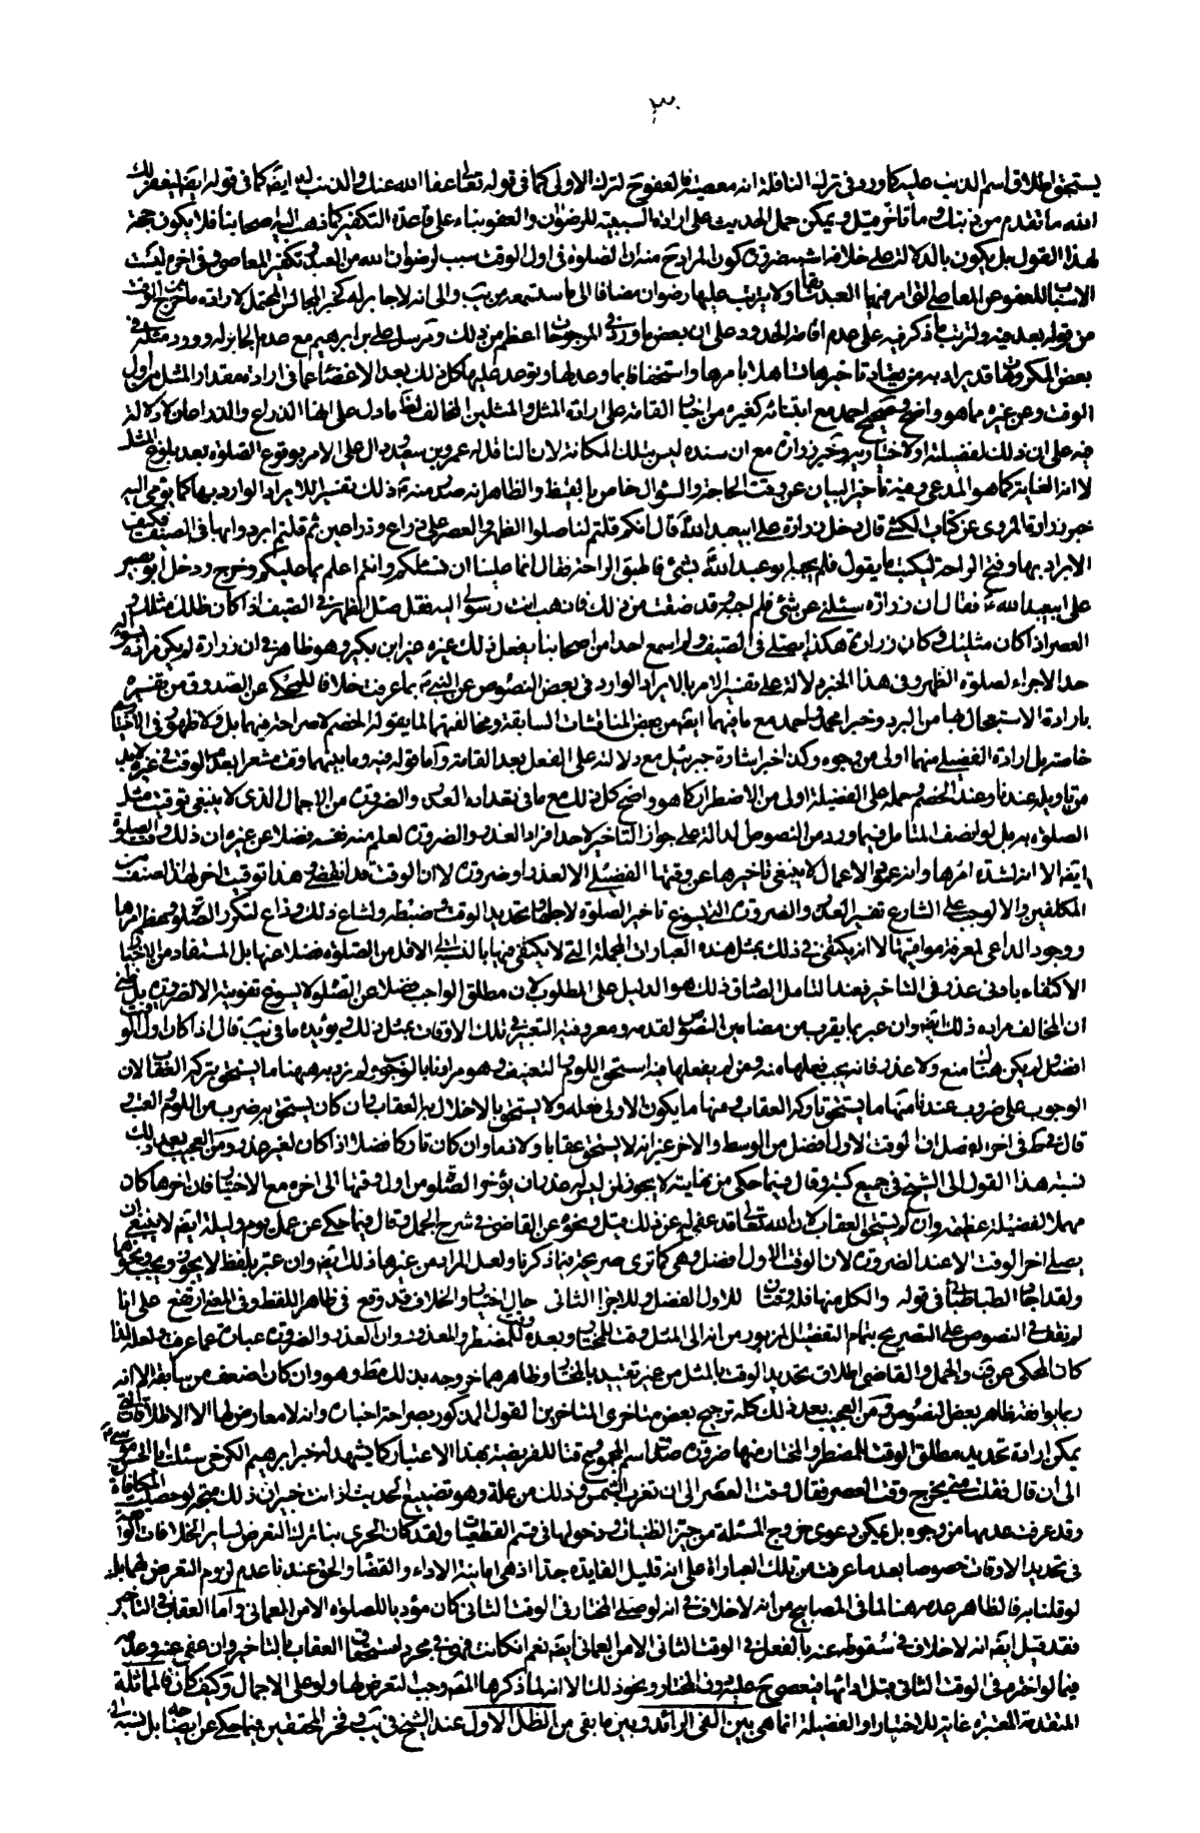 ٣٠
يستحق اطلاق اسم الذنب عليه كما ورد في ترك النافلة انه معصية فالعفو ح لترك الاولى كما في قوله تعالى عفا الله عنك والذنب له ايضا كما في قوله ايضا ليغفر لك
الله ما تقدم من ذنبك وما تأخر قيل ويمكن حمل الحديث على ارادة السببية للرضوان والعفو بناء على قاعدة التكفير كما ذهب اليه اصحابنا فلا يكون حجة
لهذا القول بل يكون بالدلالة على خلافه اشبه ضرورة كون المراد ح منه ان الصلوة في اول الوقت سبب لرضوان الله من العبد وتكفير المعاصي وفي اخره ليست
الا سببا للعفو عن المعاصي التي امر منها العبد ولا يترتب عليها رضوان مضافا الى ما ستسمعه من يب والى انه لا جابر له كخبر المحتمل لارادة ما خرج الوقت
من قوله بعد فيه ولترتب ما ذكر فيه على عدم اقامة الحدود على ان بعض ما ورد في المرجوحات اعظم من ذلك ومرسل علي بن ابراهيم مع عدم الجابر له وورود مثله في
بعض المكروهات قد يراد به من يعتاد تأخيرها تساهلا بامرها واستخفافا بما وعد لها وتوعد عليها كل ذلك بعد الاغضاء عما في ارادة مقدار المثل من اول
الوقت وعن غيره مما هو واضح وصحيح احمد مع ابتنائه كغيره من اخبار القامة على ارادة المثل والمثلين المخالف لما دل على انها الذراع والذراعان لا دلالة
فيه على ان ذلك لفضيلة او لاختيارية وخبر زرارة مع ان سنده ليس بتلك المكانة لان الناقل له عمرو بن سعيد دال على الامر بوقوع الصلوة بعد بلوغ المثل
لا انه الغاية كما هو المدعى وفيه تأخير البيان عن وقت الحاجة والسؤال خاص بالقيظ والظاهر انه صدر منه ع ذلك تفسيرا للابراد الوارد بها كما يؤمي اليه
خبر زرارة المروي عن كتاب الكشي قال دخل زرارة على ابي عبد الله ع قال انكم قلتم لنا صلوا الظهر والعصر على ذراع وذراعين ثم قلتم ابردوا بها في الصيف فكيف
الابراد بها وفتح الواحه ليكتب ما يقول فلم يجبه ابو عبد الله ع بشئ فاطبق الواحه فقال انما علينا ان نسئلكم وانتم اعلم بما عليكم وخرج ودخل ابو بصير
على ابي عبد الله ع فقال ان زرارة سئلني عن شئ فلم اجبه وقد ضقت من ذلك فاذهب انت رسولي اليه فقل صل الظهر في الصيف اذا كان ظلك مثلك و
العصر اذا كان مثليك وكان زرارة هكذا يصلي في الصيف ولم اسمع احدا من اصحابنا يفعل ذلك غيره غير ابن بكير وهو ظاهر في ان زرارة لم يكن قرأته
حدا لاجزاء لصلوة الظهر وفي هذا الخبر دلالة على تفسير الامر بالابراد الوارد في بعض النصوص عن النبي ص بما عرفت خلافا للمحكي عن الصدوق من تفسيره
بارادة الاستعجال بها من البريد وخبرا محمد واحمد مع ما فيهما ايضا من بعض المناقشات السابقة ومخالفتهما لما يقوله الخصم لا صراحة فيهما بل ولا ظهور في الاختيار
خاصة بل ارادة الفضيلة منهما اولى من وجوه وكذا خبر اشارة جبرئيل مع دلالته على الفعل بعد القامة واما قوله فيه وما بينهما وقت مشعرا بعدم الوقت في غيره فلا بد
من تأويله عندنا وعند الخصم وحمله على الفضيلة اولى من الاضطرار كما هو واضح كل ذلك مع ما في تقدير العذر والضرورة من الاجمال الذي لا ينبغي توقيت مثل
الصلوة به بل لو انصف المتأمل فيما ورد من النصوص الدالة على جواز التأخير لاحد افراد العذر والضرورة لعلم منه نفسه فضلا عن غيره ان ذلك وقت للصلوة
ايضا الا انه لشدة امرها وانه عمود الاعمال لا ينبغي تأخيرها عن وقتها الفضيلي الا لعذر او ضرورة لا ان الوقت قد انقضى وهذا توقيت اخر لهذا الصنف من
المكلفين والا لوجب على الشارع تفسير العذر والضرورة التي يسوغ تأخير الصلوة لاجلها وتحديد الوقت وضبطه ولشاع ذلك وذاع لتكرر الصلوة وعظم امرها
ووجود الداعي لمعرفة مواقيتها لا انه يكتفي في ذلك بمثل هذه العبارات المجملة التي لا يكتفى فيها بالنسبة الى الاقل من الصلوة فضلا عنها بل المستفاد من الاخبار
الاكتفاء بادنى عذر في التأخير فعند التأمل الصادق ذلك هو الدليل على المطلوب لان مطلق الواجب فضلا عن الصلوة لا يسوغ تفويته الا لضرورة بل يظن
ان المخالف مراده ذلك ايضا وان عبر بما يقرب من مضامين النصوص لقدمه ومعروفية التعبير في تلك الاوقات بمثل ذلك ويؤيده ما في يب قال اذا كان اول الوقت
افضل ولم يكن هناك منع ولا عذر فانه يجب فعلها منه ومن لم يفعلها فيه استحق اللوم والتعنيف وهو مرادنا بالوجوب ولم نرد به ههنا ما يستحق بتركه العقاب لان
الوجوب على ضروب عندنا منها ما يستحق تاركه العقاب ومنها ما يكون الاولى فعله ولا يستحق بالاخلال به العقاب وان كان يستحق به ضرب من اللوم والعتب و
قال في في اخر الفصل ان الوقت الاول افضل من الوسط والاخر غير انه لا يستحق عقابا ولا ذما وان كان تاركا فضلا اذا كان لغير عذر ومن العجيب بعد ذلك
نسبة هذا القول الى الشيخ في جميع كتبه وقال فيما حكي من نهايته لا يجوز لمن ليس له عذر ان يؤخر الصلوة من اول وقتها الى اخره مع الاختيار فان اخرها كان
مهملا لفضيلة عظيمة وان لم يستحق العقاب لان الله تعالى قد عفى له عن ذلك قيل ونحوه عن القاضي في شرح الجمل وقال فيما حكي عن عمل يوم وليلة ايضا لا ينبغي ان
يصلي اخر الوقت الا عند الضرورة لان الوقت الاول افضل وهي كما ترى صريحة فيما ذكرنا ولعل المراد من غيرها ذلك ايضا وان عبر بلفظ لا يجوز ويجب ونحوها
ولقد اجاد الطباطبائي في قوله والكل منها فله وقتان للاول الفضل وللاجزا الثاني حال اختيار والخلاف قد وقع في ظاهر اللفظ وفي المعنى ارتفع على انا
لم نقف في النصوص على التصريح بتمام التفصيل المزبور من انه الى المثل وقت للمختار وبعده وقت للمضطر والمعذور وان العذر والضرورة عبارة عما عرفت ولعله لذا
كان المحكي عن ف والجمل والقاضي اطلاق تحديد الوقت بالمثل من غير تقييد بالمختار وظاهرهما خروجه بذلك مطلقا وهو وان كان اضعف من سابقه الا انه
ربما يوافقه ظاهر بعض النصوص ومن العجيب بعد ذلك كله ترجيح بعض متأخري المتأخرين القول المذكور بصراحة اخباره وانه لا معارض لها الا الاطلاقات التي
يمكن ارادة تحديد مطلق الوقت للمضطر والمختار منها ضرورة صدق اسم المجموع وقتا للفريضة بهذا الاعتبار كما يشهد له خبر ابراهيم الكرخي سئلت ابا الحسن موسى ع
الى ان قال فقلت متى يخرج وقت العصر فقال وقت العصر الى ان تغرب الشمس وذلك من علة وهو تضييع الحديث اذ انت خبير ان ذلك متجه لو حصلت المكافأة
وقد عرفت عدمها من وجوه بل يمكن دعوى خروج المسئلة من حيز الظنيات ودخولها في قسم القطعيات ولقد كان الحري بنا ترك التعرض لسائر الخلافات الواقعة
في تحديد الاوقات خصوصا بعد ما عرفت من تلك العبارة على انه قليل الفايدة جدا اذ هي اما نية الاداء والقضاء والحق عندنا عدم لزوم التعرض لهما بل
لو قلنا به فالظاهر عدمه هنا لما في المصابيح من انه لا خلاف في انه لو صلى المختار في الوقت الثاني كان مؤديا للصلوة لا من المعاني واما العقاب في التأخير
فقد قيل ايضا انه لا خلاف في سقوطه عنه بالفعل في الوقت الثاني لا من المعاني ايضا نعم ان كانت فهي في مجرد استحقاق العقاب بالتأخير وان عفى عنه وعدمه
فيما لو اخترم في الوقت الثاني قبل ادائها فيعصي ح عليه دون المختار ونحو ذلك الا انه لما ذكرها المصنف وجب التعرض لها ولو على الاجمال وكيف كان فالمماثلة
المتقدمة المعتبرة غاية للاختيار او الفضيلة انما هي بين الفئ الزائد وبين ما بقي من الظل الاول عند الشيخ في يب وفخر المحققين فيما حكي عن ايضاحه بل نسبه الى